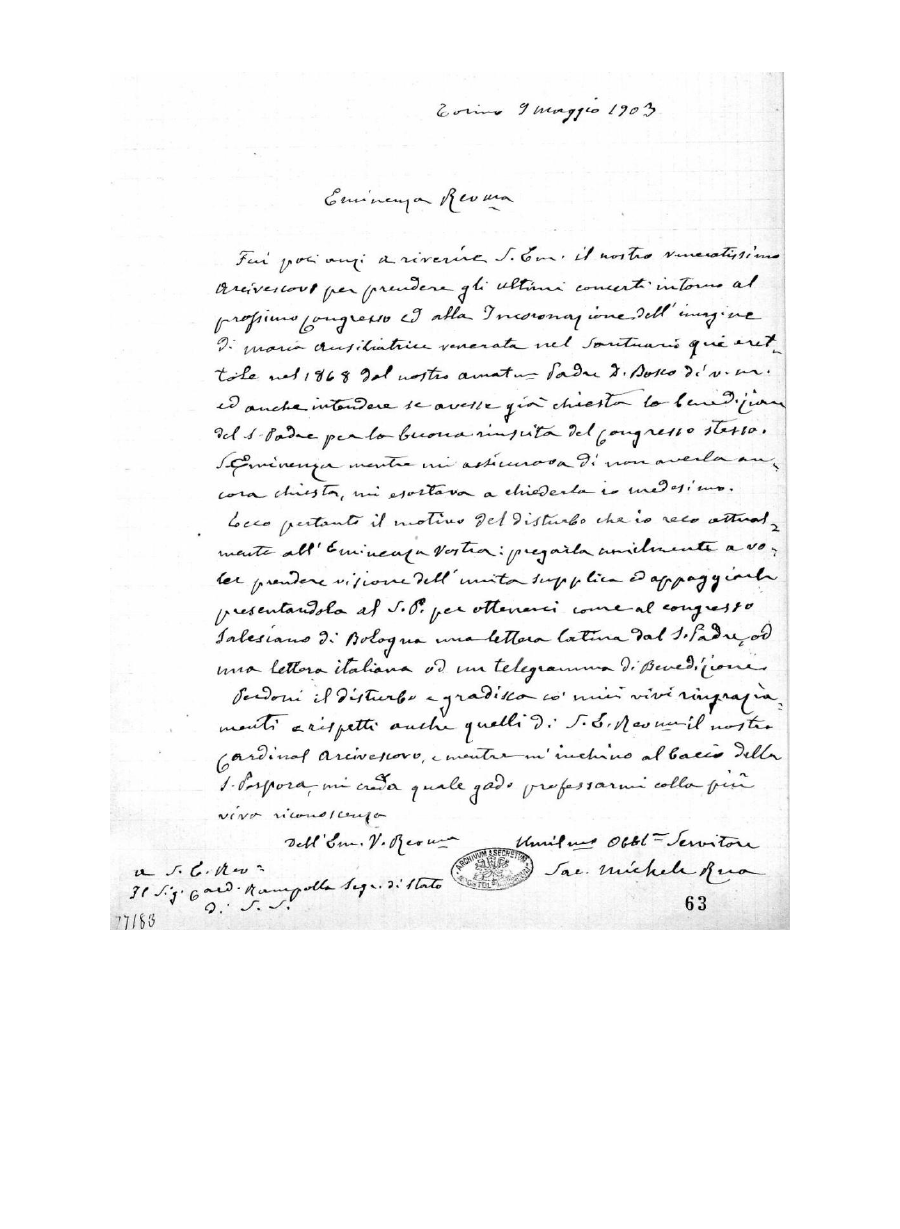 Torino 9 Maggio 1903
Eminenza Revma
Fui poc'anzi a riverire S. Em. il nostro veneratissimo
Arcivescovo per prendere gli ultimi concerti intorno al
prossimo Congresso ed alla Incoronazione dell'imagine
di Maria Ausiliatrice venerata nel Santuario qui eret-
tole nel 1868 dal nostro amatmo Padre D. Bosco di v. m.
ed anche intendere se avesse già chiesta la benedizione
del S. Padre per la buona riuscita del Congresso stesso.
S. Eminenza mentre mi assicurava di non averla an-
cora chiesta, mi esortava a chiederla io medesimo.
Ecco pertanto il motivo del disturbo che io reco attual-
mente all'Eminenza Vostra: pregarla umilmente a vo-
ler prendere visione dell'unita supplica ed appoggiarla
presentandola al S. P. per ottenerci come al congresso
Salesiano di Bologna una lettera latina dal S. Padre, od
una lettera italiana od un telegramma di Benedizione.
Perdoni il disturbo e gradisca co' miei vivi ringrazia-
menti e rispetti anche quelli di S. E. Revma il nostro
Cardinal Arcivescovo, e mentre m'inchino al bacio della
S. Porpora, mi creda quale godo professarmi colla più
viva riconoscenza
dell'Em. V. Revma
Umilmo Obblmo Servitore
Sac. Michele Rua
A S. E. Reva
Il Sig. Card. Rampolla Segr. di Stato
di S. S.
ARCHIVUM SECRETUM
63
77188